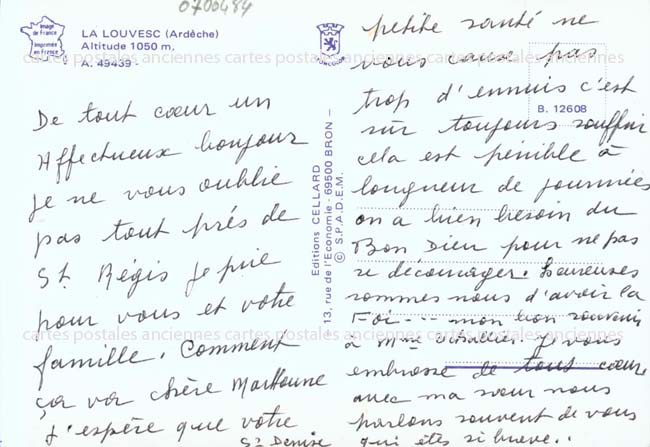 0700484
Image de France
Imprimée en France
LA LOUVESC (Ardèche)
Altitude 1050 m.
A. 49439 -
cartes postales anciennes cartes postales anciennes cartes postales anciennes
De tout cœur un
Affectueux bonjour
je ne vous oublie
pas tout près de
St. Régis je prie
pour vous et votre
famille. Comment
ça va chère
J'espère que votre
Sr Denise
Editions CELLARD
- 13, rue de l'Economie - 69500 BRON -
© S.P.A.D.E.M.
B. 12608
petite santé ne
vous cause pas
trop d'ennuis c'est
sûr toujours souffrir
cela est pénible à
longueur de journées
on a bien besoin du
Bon Dieu pour ne pas
se décourager. heureuses
sommes nous d'avoir la
Foi --- mon bon souvenir
à Mme Je vous
embrasse de tout cœur
avec ma sœur nous
parlons souvent de vous
qui êtes si brave.
cartes postales anciennes cartes postales anciennes cartes postales anciennes